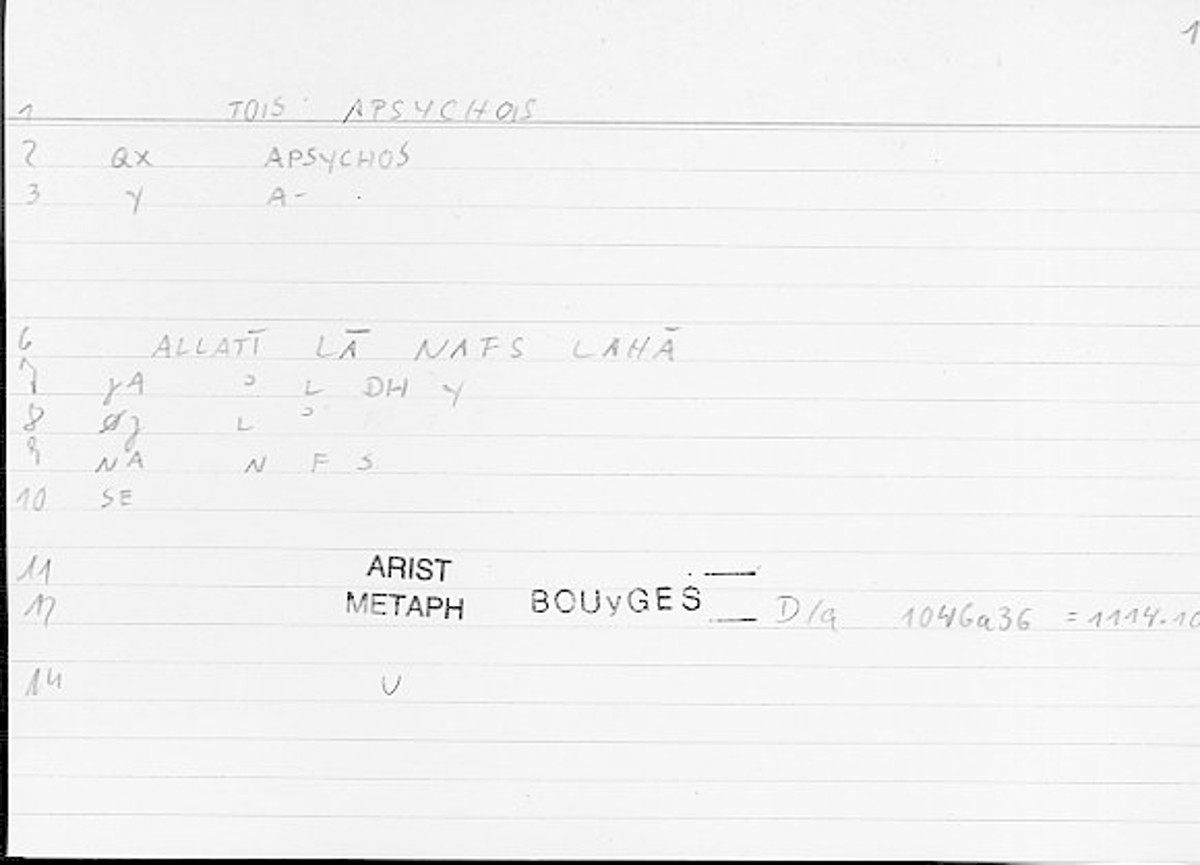 1
1 TOIS APSYCHOIS
2 QX APSYCHOS
3 Y A-
6 ALLATĪ LĀ NAFS LAHĀ
7 ɣA ʾ L DH Y
8 L ʾ
9 NA N F S
10 SE
11 ARIST
12 METAPH BOUyGES D/a 1046a36 =1114.10
14 U